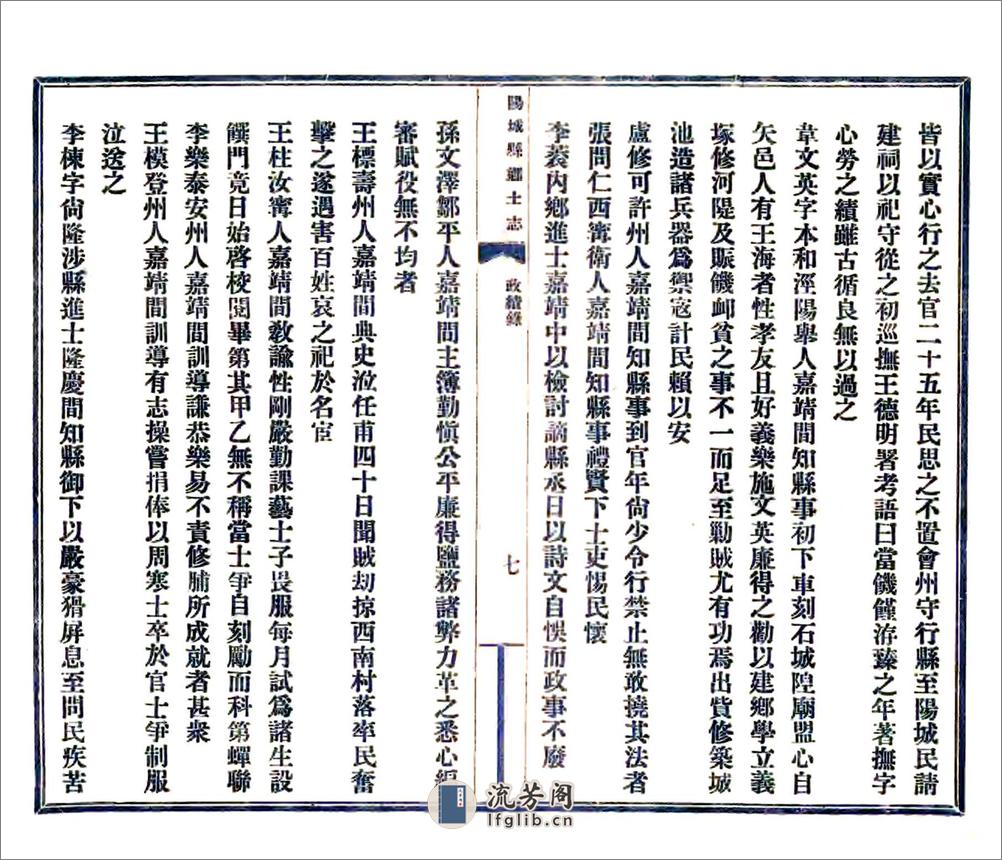 皆以實心行之去官二十五年民思之不置會州守行縣至陽城民請
建祠以祀守從之初巡撫王德明署考語曰當饑饉洊臻之年著撫字
心勞之績雖古循良無以過之
韋文英字本和涇陽舉人嘉靖間知縣事初下車刻石城隍廟盟心自
矢邑人有王海者性孝友且好義樂施文英廉得之勸以建鄉學立義
塚修河隄及賑饑卹貧之事不一而足至勦賊尤有功焉出貲修築城
池造諸兵器爲禦寇計民賴以安
盧修可許州人嘉靖間知縣事到官年尙少令行禁止無敢撓其法者
張問仁西寗衛人嘉靖間知縣事禮賢下士吏惕民懷
李蓘內鄉進士嘉靖中以檢討謫縣丞日以詩文自悞而政事不廢
陽城縣鄉土志
政績錄
七
孫文澤鄒平人嘉靖間主簿勤愼公平廉得鹽務諸弊力革之悉心編
審賦役無不均者
王標壽州人嘉靖間典史涖任甫四十日聞賊刧掠西南村落率民奮
擊之遂遇害百姓哀之祀於名宦
王柱汝寗人嘉靖間敎諭性剛嚴勤課藝士子畏服每月試爲諸生設
饌門竟日始啓校閱畢第其甲乙無不稱當士爭自刻勵而科第蟬聯
李樂泰安州人嘉靖間訓導謙恭樂易不責修脯所成就者甚衆
王模登州人嘉靖間訓導有志操嘗捐俸以周寒士卒於官士爭制服
泣送之
李棟字尙隆涉縣進士隆慶間知縣御下以嚴豪猾屏息至問民疾苦
流芳阁
lfglib.cn